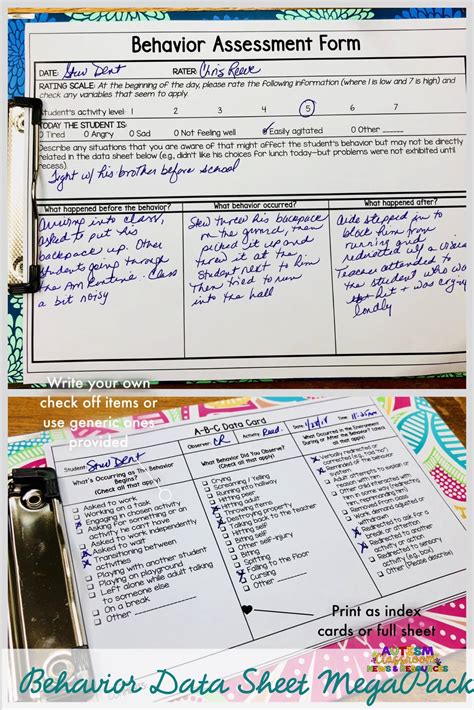 Behavior Assessment Form
DATE: Stew Dent RATER: Chris Reeve
RATING SCALE: At the beginning of the day, please rate the following information (where 1 is low and 7 is high) and
check any variables that seem to apply.
Student's activity level: 1 2 3 4 5 6 7
TODAY THE STUDENT IS:
Tired Angry Sad Not feeling well Easily agitated Other
Describe any situations that you are aware of that might affect the student's behavior but may not be directly
related in the data sheet below (e.g., didn't like his choices for lunch today—but problems were not exhibited until
recess).
Fight w/ his brother before school
What happened before the behavior? What behavior occurred? What happened after?
Arriving into class,
asked to put his
backpack up. Other
students going through
the AM Routine. Class
a bit noisy
Stew threw his backpack
on the ground, then
picked it up and
threw it at the
student next to him
Then tried to run
into the hall
Aide stepped in to
block him from
running and
redirected w/ a
Teacher attended to
the student who wa
hit + was crying
loudly
Write your own
check off items or
use generic ones
provided
A-B-C Data Card
Student: Stew Dent Observer: CR Activity: Read. 11:25am
What's Occurring as The Behavior
Begins?
(Check all that apply)
Asked to work
Working on a task
Engaging in chosen activity
Asking for something or an
activity he can't have
Asked to work independently
Asked to wait
Transitioning between
activities
Playing with another student
Playing on playground
Left alone while adult talking
to someone else
On a break
Other
What Behavior Did You Observe?
(Check all that apply)
Crying
Screaming / Yelling
Running into hallway
Hitting peer
Hitting adult
Throwing items
Destroying property
Talking back to the teacher
Hitting self
Biting other
Biting self
Self-injury
Spitting
Falling to the Floor
Cursing
Other
What Occurred in the Environment
During or After the Behavior?
(Check all that apply)
Verbally redirected or
Reminded of the
system
Adult attempts to explain
reason with him
Other kids interacted with
him in some way
Work demand removed
Adult withdrawn
Redirected to ask for a
break or attention
Redirected to
activity or action
Redirected to sensory
activity (e.g. box)
Other (Please describe)
Print as index
cards or full sheet
AUTISM
Classroom
NEWS & RESOURCES
Behavior Data Sheet MegaPack